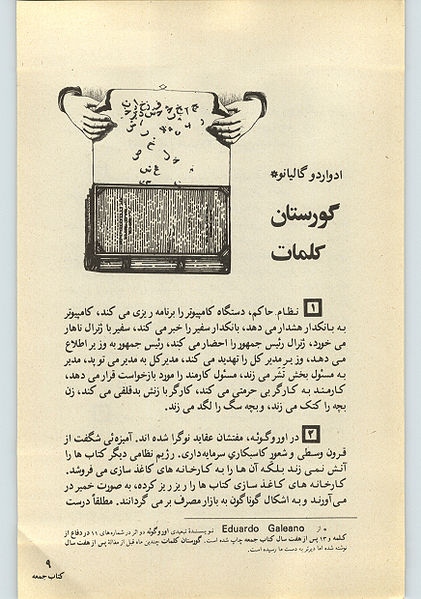 ادواردو گالیانو*
گورستان
کلمات
۱ نظام حاکم، دستگاه کامپیوتر را برنامه ریزی می کند، کامپیوتر
به بانکدار هشدار می دهد، بانکدار سفیر را خبر می کند، سفیر با ژنرال ناهار
می خورد، ژنرال رئیس جمهور را احضار می کند، رئیس جمهور به وزیر اطلاع
می دهد، وزیر مدیر کل را تهدید می کند، مدیر کل به مدیر می توپد، مدیر
به مسئول بخش تشر می زند، مسئول کارمند را مورد بازخواست قرار می دهد،
کارمند به کارگر بی حرمتی می کند، کارگر با زنش بدقلقی می کند، زن
بچه را کتک می زند، و بچه سگ را لگد می زند.
۲ در اوروگوئه، مفتشان عقاید نوگرا شده اند. آمیزه ئی شگفت از
قرون وسطی و شعور کاسبکاری سرمایه داری. رژیم نظامی دیگر کتاب ها را
آتش نمی زند بلکه آن ها را به کارخانه های کاغذ سازی می فروشد.
کارخانه های کاغذ سازی کتاب ها را ریز ریز کرده، به صورت خمیر در
می آورند و به اشکال گوناگون به بازار مصرف بر می گردانند. مطلقاً درست
* از Eduardo Galeano نویسندهٔ تبعیدی اوروگوئه دو اثر در شماره های ۱۱ در دفاع از
کلمه و ۱۳ پس از هفت سال کتاب جمعه چاپ شده است. گورستان کلمات چندین ماه قبل از مقالهٔ پس از هفت سال
نوشته شده اما دیرتر به دست ما رسیده است.
۹
کتاب جمعه